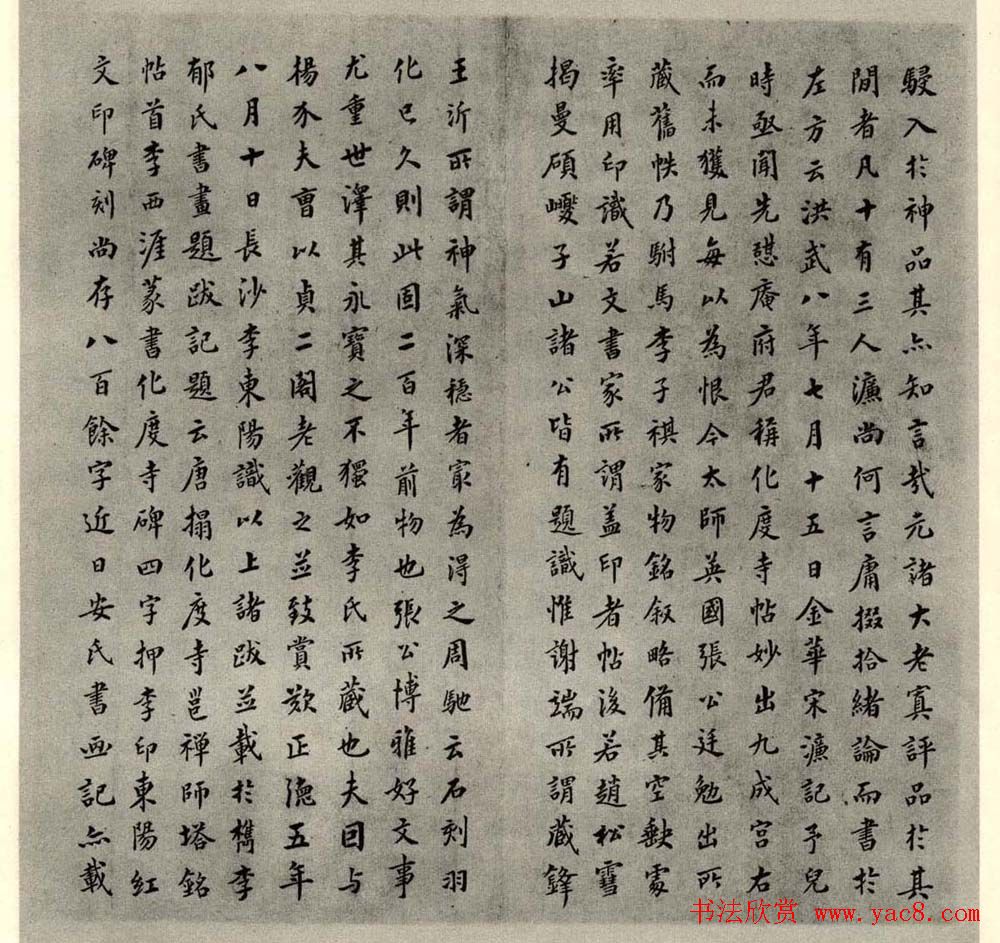 駸入於神品其亦知言哉元諸大老寘評品於其
間者凡十有三人濂尚何言庸掇拾緒論而書於
左方云洪武八年七月十五日金華宋濂記予兒
時亟聞先憇庵府君稱化度寺帖妙出九成宮右
而未獲見每以為恨今太師英國張公廷勉出所
藏舊帙乃駙馬李子祺家物銘叙略備其空缺處
率用印識若文書家所謂盖印者帖後若趙松雪
揭曼碩巙子山諸公皆有題識惟謝端所謂藏鋒
王沂所謂神氣深穩者寔為得之周馳云石刻羽
化已久則此固二百年前物也張公博雅好文事
尤重世澤其永寶之不獨如李氏所藏也夫回与
楊介夫曹以貞二閣老觀之並致賞歎正德五年
八月十日長沙李東陽識以上諸跋並載於檇李
郁氏書畫題跋記題云唐搨化度寺邕禅師塔銘
帖首李西涯篆書化度寺碑四字押李印東陽紅
文印碑刻尚存八百餘字近日安氏書画記亦載
书法欣赏 www.yac8.com